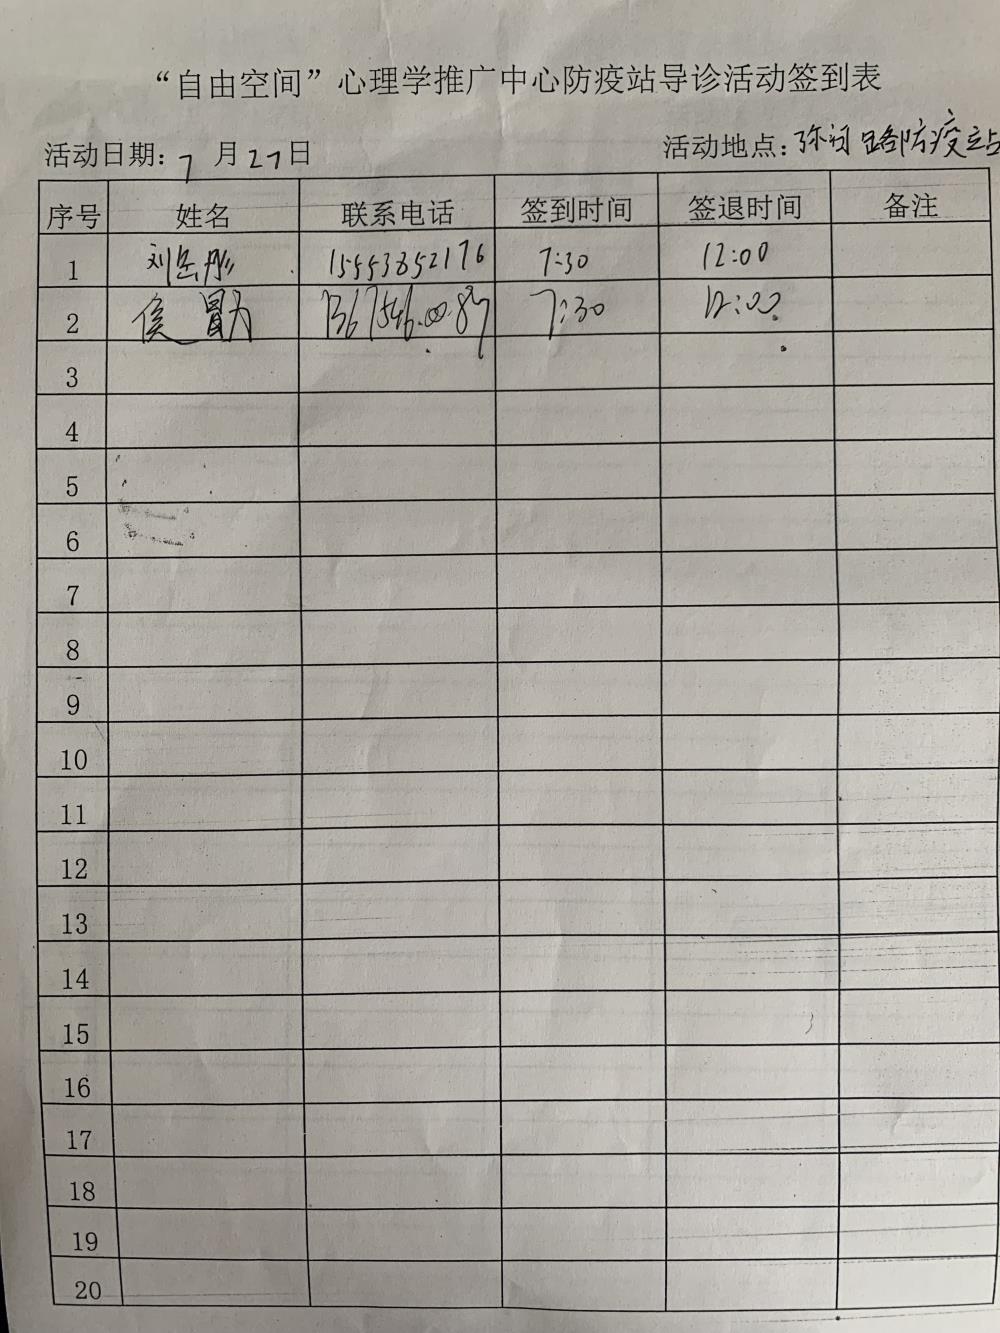 “自由空间”心理学推广中心防疫站导诊活动签到表
活动日期：7月27日 活动地点：弥河路防疫站
序号 姓名 联系电话 签到时间 签退时间 备注
1 刘岳彤 15553652176 7:30 12:00
2 侯 7:30 12:00
3
4
5
6
7
8
9
10
11
12
13
14
15
16
17
18
19
20